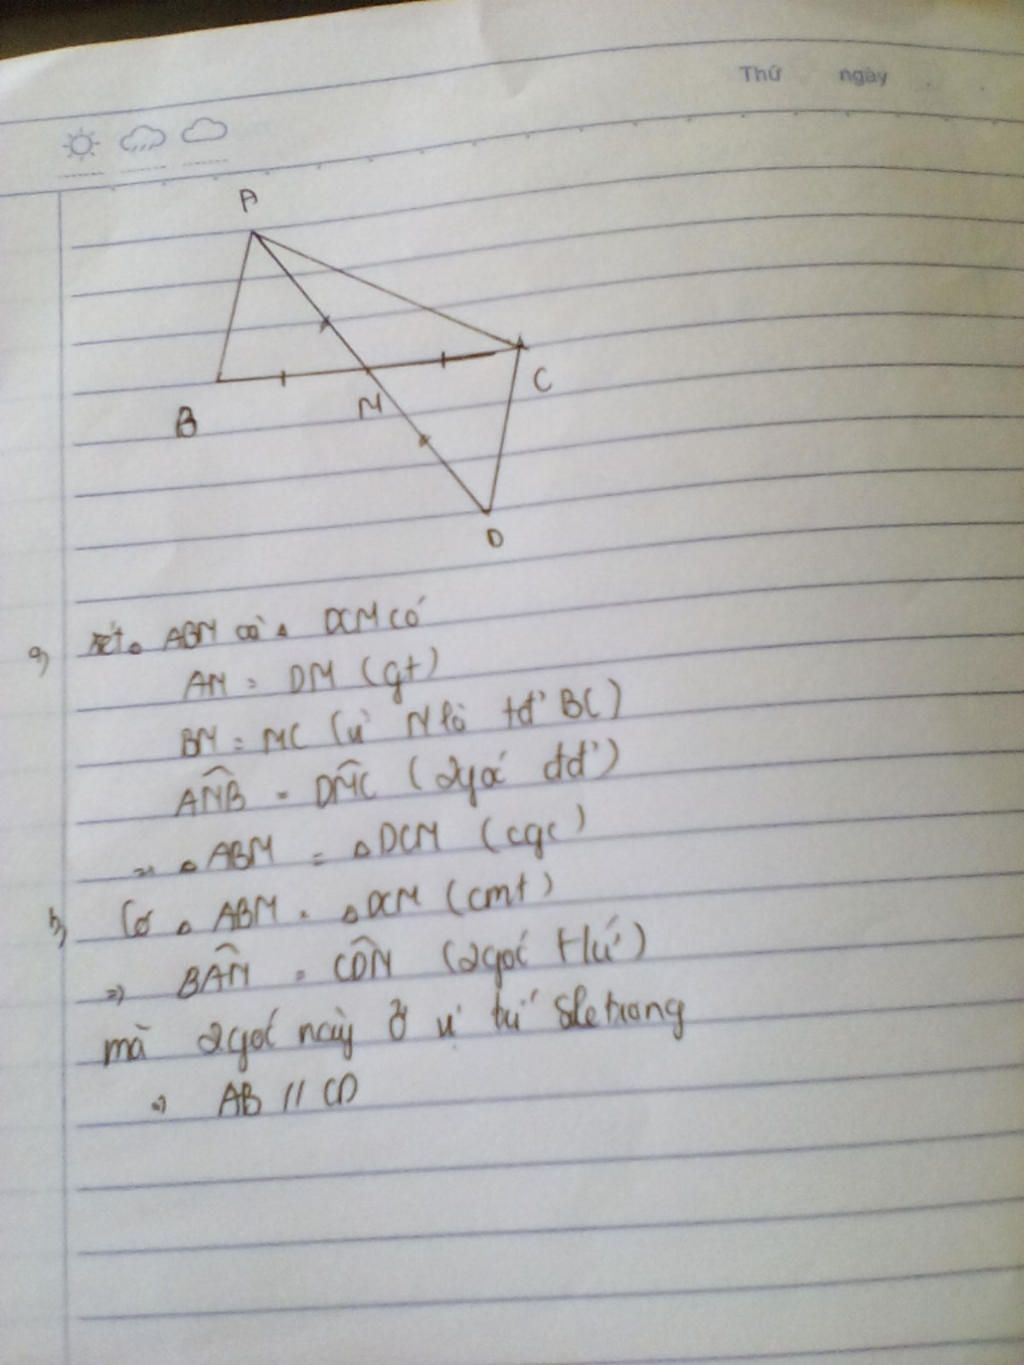 Thứ ngày
A
B
M
C
D
a, Xét △ ABM và △ DCM có
AM = DM (gt)
BM = MC (vì M là tđ' BC)
AMB = DMC (2 góc đđ')
=> △ ABM = △ DCM (cgc)
b, Có △ ABM = △ DCM (cmt)
=> BAM = CDM (2 góc t/ứ)
mà 2 góc này ở vị trí sle trong
=> AB // CD